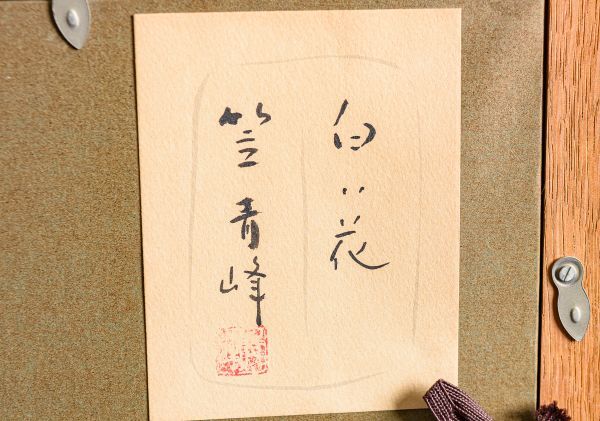 白い花
竺青峰